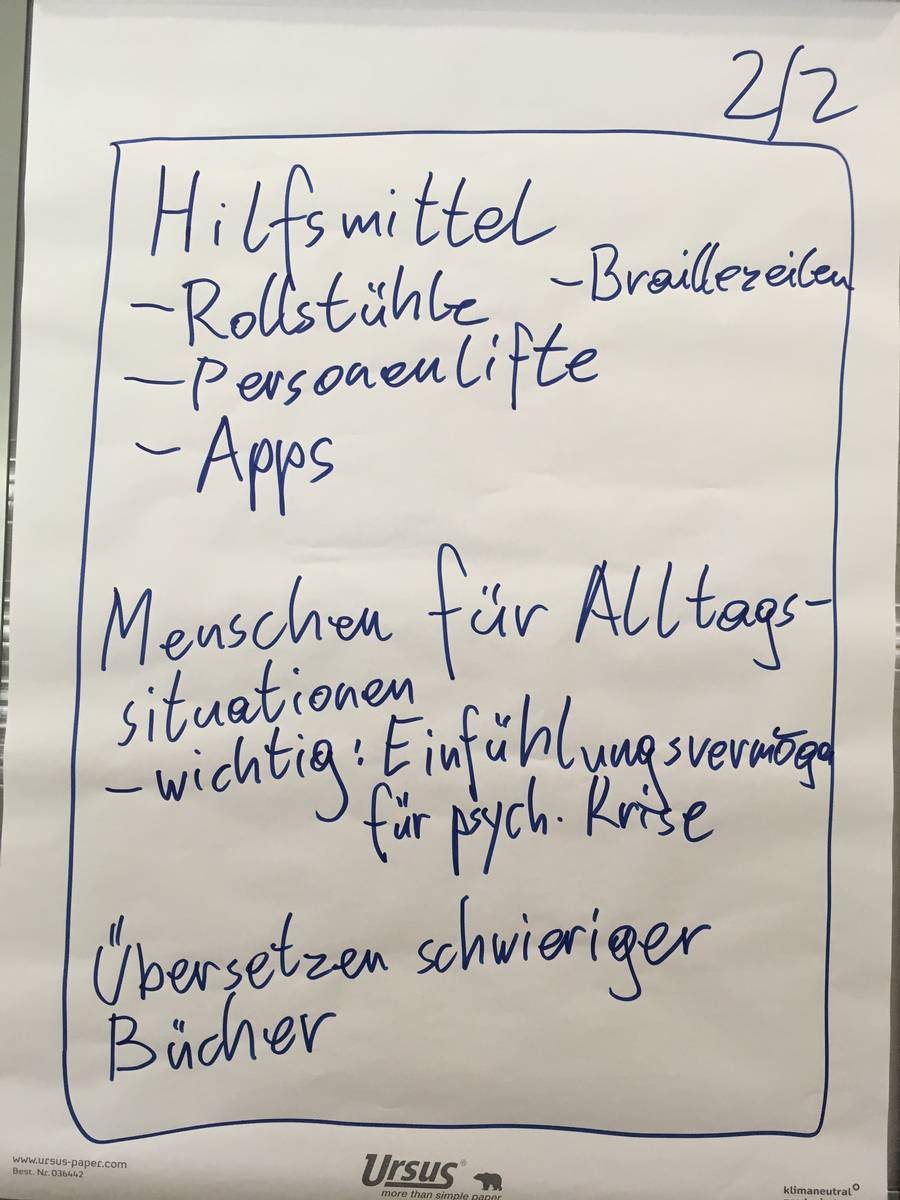 2/2
Hilfsmittel
- Rollstühle
- Braillezeilen
- Personenlifte
- Apps
Menschen für Alltags-
situationen
- wichtig: Einfühlungsvermöge
für psych. Krise
Übersetzen schwieriger
Bücher
www.ursus-paper.com
Best. Nr. 036442
Ursus®
more than simple paper
klimaneutral